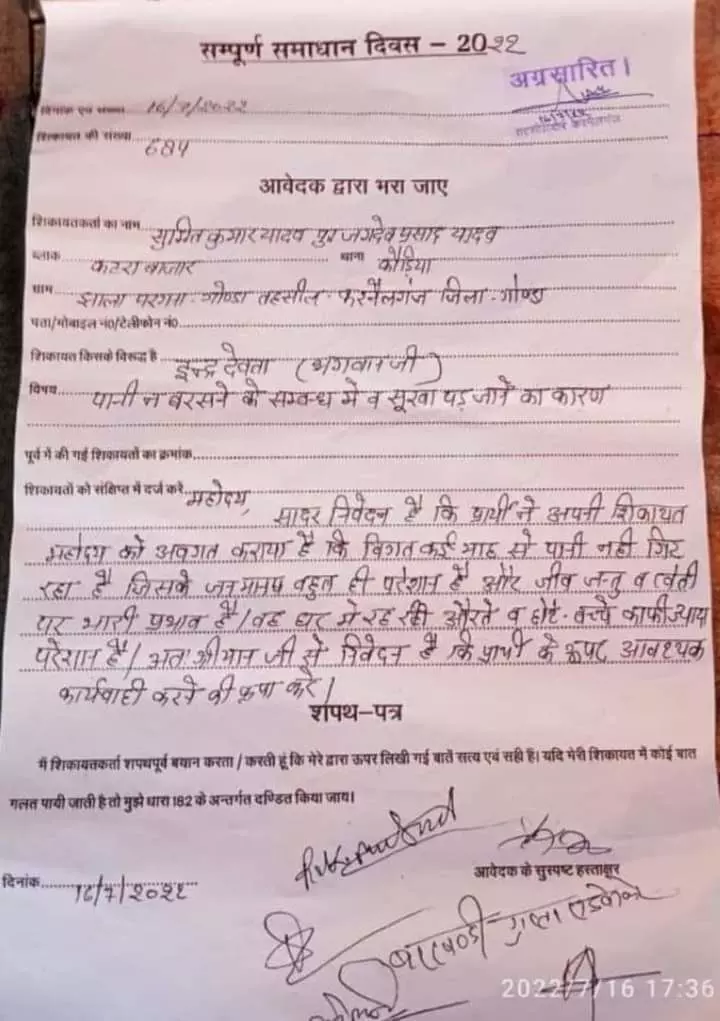 सम्पूर्ण समाधान दिवस – 2022
अग्रसारित।
दिनांक एवं समय 16/7/2022
शिकायत की संख्या
आवेदक द्वारा भरा जाए
शिकायतकर्ता का नाम सुमित कुमार यादव पुत्र जगदेव प्रसाद यादव
ब्लाक कटरा बाजार थाना कौड़िया
ग्राम झाला परगना-गोण्डा तहसील-करनैलगंज जिला-गोण्डा
पता/मोबाइल नं0/टेलीफोन नं0
शिकायत किसके विरूद्ध है इन्द्र देवता (भगवान जी)
विषय पानी न बरसने के सम्बन्ध मे व सूखा पड़ जाने का कारण
पूर्व में की गई शिकायतों का क्रमांक
शिकायतों को संक्षिप्त में दर्ज करें महोदय,
सादर निवेदन है कि प्रार्थी ने अपनी शिकायत
महोदय को अवगत कराया है कि विगत कई माह से पानी नही गिर
रहा है जिसके जनमानस बहुत ही परेशान है और जीव जन्तु व खेती
पर भारी प्रभाव है/ वह घर मे रह रही औरते व छोटे-बच्चे काफी ज्यादा
परेशान है/ अतः श्रीमान जी से निवेदन है कि प्रार्थी के ऊपर आवश्यक
कार्यवाही करने की कृपा करे/
शपथ–पत्र
मैं शिकायतकर्ता शपथपूर्व बयान करता / करती हूं कि मेरे द्वारा ऊपर लिखी गई बातें सत्य एवं सही है। यदि मेरी शिकायत में कोई बात
गलत पायी जाती है तो मुझे धारा 182 के अन्तर्गत दण्डित किया जाय।
आवेदक के सुस्पष्ट हस्ताक्षर
दिनांक 16/7/2022
गुप्ता एडवोकेट
2022/7/16 17:36